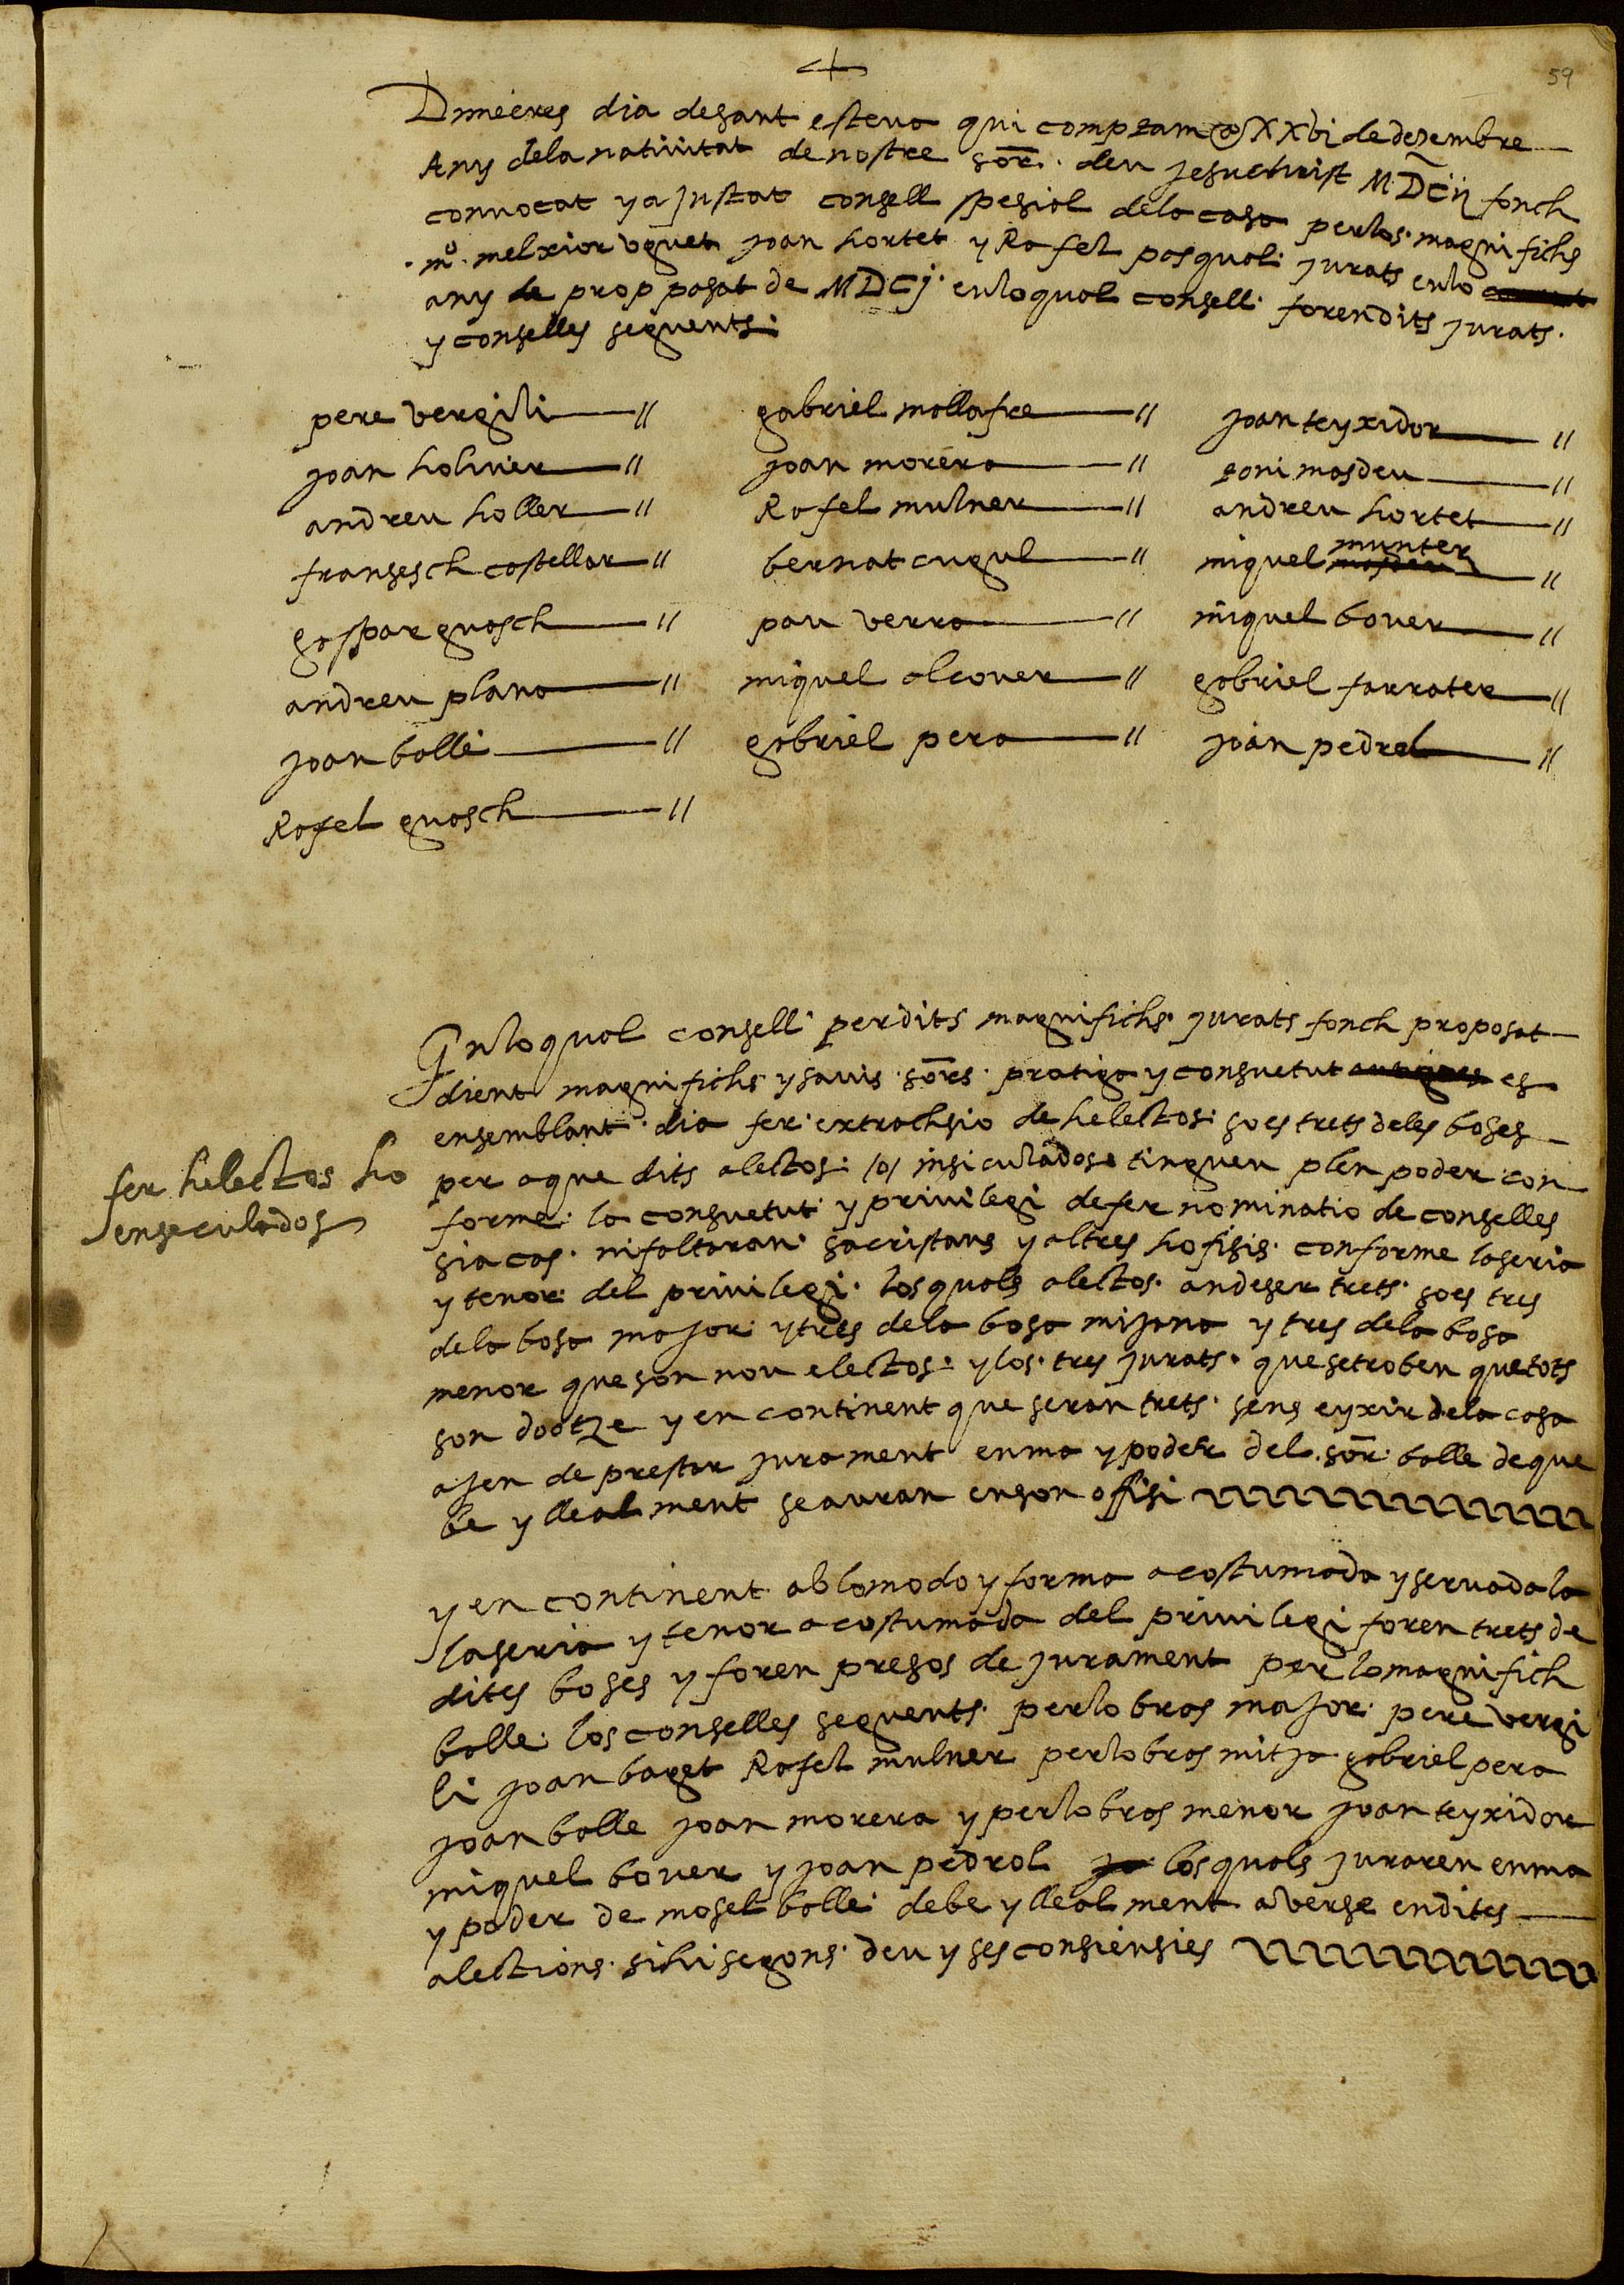 59
Dimecres dia de sant esteva qui comptam a XXVi de dezembre
Any dela nativitat de nostre sor. deu jesuchrist MDCij fonch
convocat y ajustat consell spesial dela casa perlos magnifichs
mo. melxior uguet joan hortet y Rafel pasqual jurats enlo
any de prop pasat de MDCj enloqual consell foren dits jurats
y conselles seguents
pere vergili // gabriel mallafre // joan teyxidor //
joan holiver // joan morera // toni masdeu //
andreu holler // Rafel mulner // andreu hortet //
fransesch castellar // bernat cugul // miquel munter //
gaspar guasch // pau verra // miquel bover //
andreu plana // miquel alcover // gabriel farrater //
joan balle // gabriel pera // joan pedrol //
Rafel guasch //
Enloqual consell perdits magnifichs jurats fonch proposat
dient magnifichs y savis sors. pratiga y consuetut es
ensemblant dia fer extrachsio de helectos so es trets deles boses
per aque dits alectos /o/ insiculados tinguen plen poder con
fer helectos ho
enseculados
forme la consuetut y privilegi defer nominatio de conselles
sia cas ni faltaran sacristans y altres hofisis conforme la seria
y tenor del privilegi los quals alectos an deser trets so es tres
dela bosa major y tres dela bosa mijana y tres dela bosa
menor que son nou electos y los tres jurats que setroben quetots
son dotze y en continent que seran trets sens eyxir dela casa
ajen de prestar jurament enma y poder del sor. balle deque
be y lleal ment se auran enson offisi
y en continent ab lo modo y forma acostumada y servada la
la seria y tenor acostumada del privilegi foren trets de
dites boses y foren presos de jurament per lo magnifich
balle los conselles seguents perlo bras major pere vergi
li joan baget Rafel mulner perlo bras mitja gabriel pera
joan balle joan morera y perlo bras menor joan teyxidor
miquel bover y joan pedrol los quals juraren enma
y poder de mosel balle debe y lleal ment averse endites
alections sihi segons deu y ses consiensies